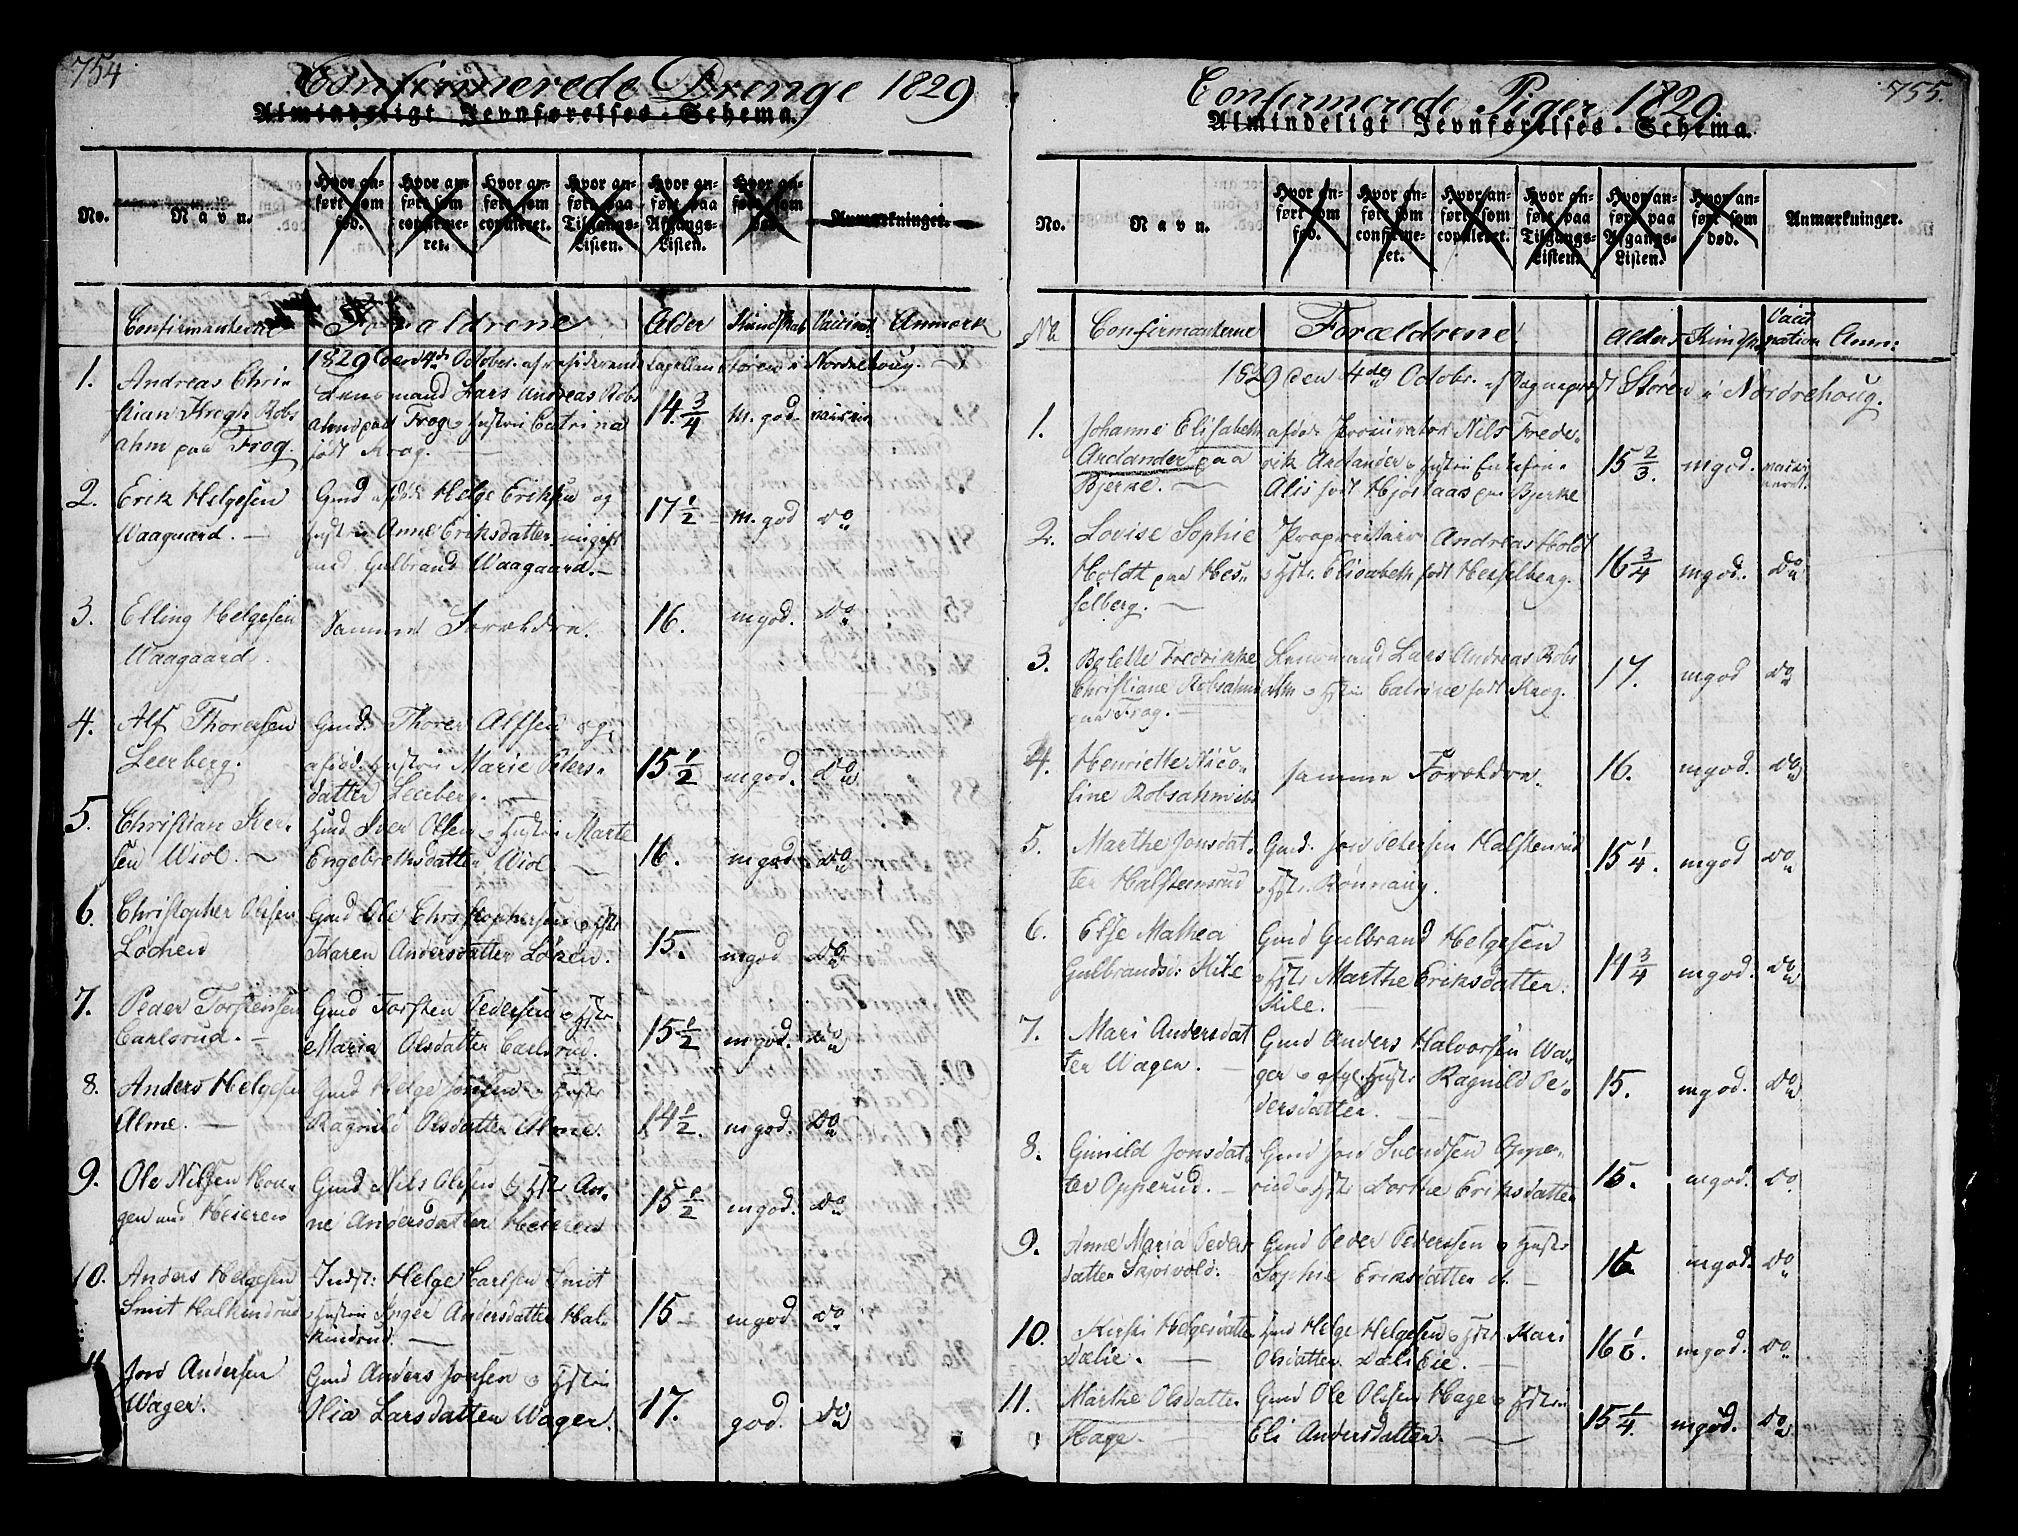 754
Confirmerede Drenge 1829
Almindeligt Jevnførelses-Schema.
No.
Navn.
Hvor anført som fød.
Hvor anført som confirmeret.
Hvor anført som copuleret.
Hvor anført paa Tilgangs-Listen.
Hvor anført paa Afgangs-Listen.
Hvor anført som død.
Anmærkninger.
Confirmanterne Forældrene Alder Kundskab Vaccinat. Anmærk
1829 den 4de October af residerende Capellan Støren i Nordrehoug.
1. Andreas Chri-
stian Krogh Robs
ahm paa Frog.
Lensmand Lars Andreas Robs
ahm paa Frog og Hustru Catrina
født Krog.
14 3/4 m. god.
2. Erik Helgesen
Waagaard.
Gmd afdøde Helge Eriksen og
Hustru Anne Eriksdatter
med Gulbrand Waagaard.
17 1/2 m. god do
3. Elling Helgesen
Waagaard.
Samme Forældre.
16. mgod. do
4. Alf Thoresen
Leerberg.
Gmd. Thorer Alfsen og
afdød Hustru Marie Peters-
datter Leerberg.
15 1/2 mgod. do
5. Christian Iver-
sen Wiol.
Hmd Iver Olsen og Hustru Marte
Engebretsdatter Wiol.
16. mgod. do
6. Christopher Olsen
Løchen
Gmd Ole Christophersen og Hstr
Karen Andersdatter Løken.
15. mgod do
7. Peder Torstensen
Carlsrud.
Gmd Torsten Pedersen og Hstr
Maria Olsdatter Carlsrud.
15 1/2 mgod. do
8. Anders Helgesen
Alme.
Gmd Helge Jonsen og Hustr
Ragnild Olsdatter Alme.
14 1/2. mgod. do
9. Ole Nilsen Hou-
gen Heieren
Gmd Nils Olsen og Hstr An-
ne Andersdatter Heieren
15 1/2 mgod. do
10. Anders Helgesen
Smit Halkinsrud
Indst: Helge Carlsen Smit
og Hustru Inger Andersdatter Hal-
kindrud.
15 mgod. do
11 Joro Andersen
Wager.
Gmd Anders Jonsen og Hstru
Olia Larsdatter Wager.
17. god. do
755.
Confirmerede Piger 1829
Almindeligt Jevnførelses-Schema.
No.
Navn.
Hvor anført som fød.
Hvor anført som confirmeret.
Hvor anført som copuleret.
Hvor anført paa Tilgangs-Listen.
Hvor anført paa Afgangs-Listen.
Hvor anført som død.
Anmærkninger.
No Confirmanterne Forældrene Alder Kundsk. Vacci
nation Anm:
1829 den 4de Octobr. af Støren i Nordrehoug.
1. Johanne Elisabeth
Andander paa
Bjerke.
afdøde Procurator Nils Frede-
rik Andander og Hustru
Alis født Hjorlaas paa Bjerke
15 2/3. mgod.
2. Lovise Sophie
Holdt paa Hes-
selberg.
Proprietair Andreas Holdt
og Hstr. Elisabeth født Hesselberg.
16 3/4 mgod. do
3. Bolette Fredrikke
Christiane Robsahm
paa Frog.
Lensmand Lars Andreas Robs
ahm og Hstru Catrine født Krog.
17. mgod do
4. Henriette Nico-
line Robsahm ibd
samme Forældre.
16. mgod. do
5. Marthe Jonsdat-
ter Halstensrud
Gmd. Joro Petersen Halstenrud
og Hstr. Rønnaug.
15 1/4. mgod do
6. Else Mathea
Gulbrandsd: Kile
Gmd Gulbrand Helgesen
og Hstr Marthe Eriksdatter
Kile.
14 3/4 mgod. do
7. Mari Andersdat
ter Wager.
Gmd Anders Halvorsen Wa-
ger og Hustr Ragnild Pe-
dersdatter.
15. mgod. do
8. Gunild Jonsdat-
ter Opperud.
Gmd Joro Svendsen Oppe-
rud og Hstr Dorthe Eriksdatter
15. mgod. do
9. Anne Maria Peders
datter Skjørvold.
Gmd Peder Pedersen og Hustr
Sophie Eriksdatter
16 mgod. do
10. Kirsti Helgesdatter
Dælie.
Hmd Helge Helgesen og Hstr Kari
Olsdatter Dæli Eie.
16 1/6. mgod. do
11. Marthe Olsdatter
Hage.
Gmd Ole Olsen Hage og Hstru
Eli Andersdatter.
15 1/4. mgod. do